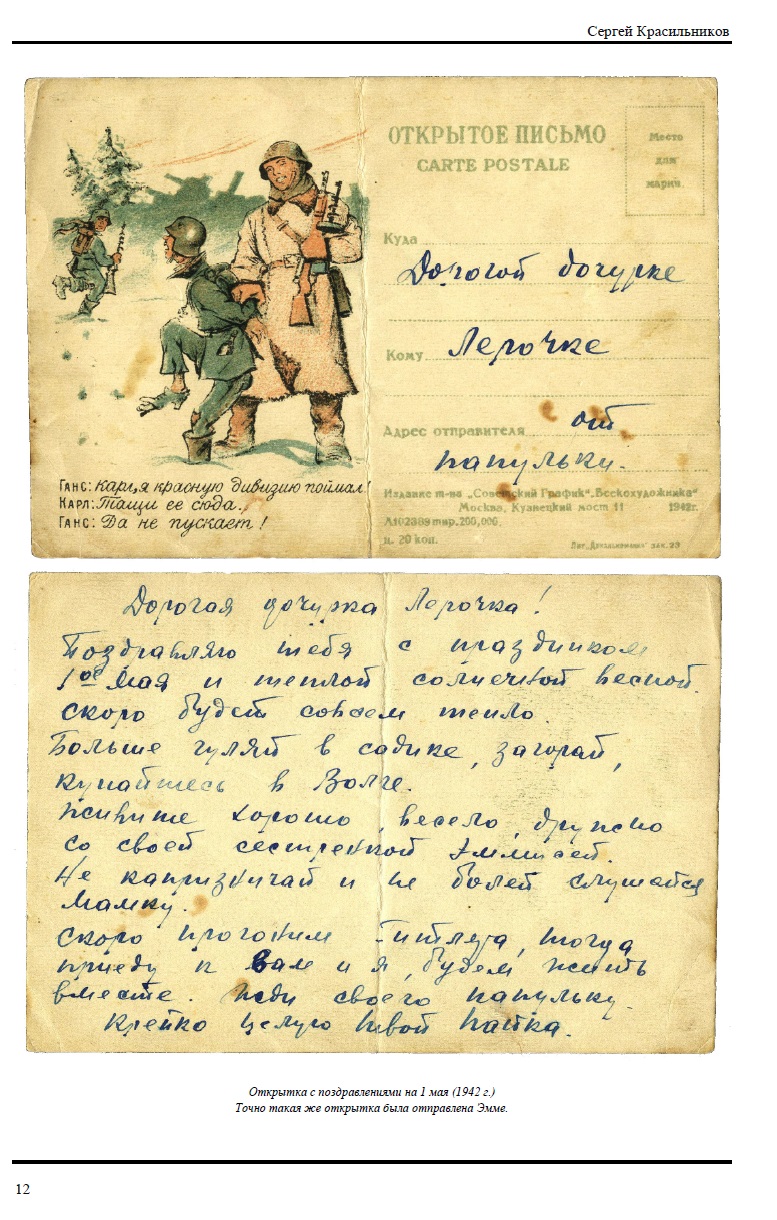 Сергей Красильников
ОТКРЫТОЕ ПИСЬМО
CARTE POSTALE
Место
для
марки.
Куда
Дорогой дочурке
Кому Лерочке
Адрес отправителя от
папульки.
Издание т-ва „Советский График“.„Всекохудожника“
Москва, Кузнецкий мост 11 1942г.
Л102389 тир. 200,000.
ц. 20 коп.
зак. 23
Ганс: Карл, я красную дивизию поймал!
Карл: Тащи ее сюда.
Ганс: Да не пускает!
Дорогая дочурка Лерочка!
Поздравляю тебя с праздником
1ое Мая и теплой солнечной весной.
Скоро будет совсем тепло.
Больше гуляй в садике, загорай,
купайтесь в Волге.
Живите хорошо, весело, дружно
со своей сестренкой Эммисей.
Не капризничай и не болей слушайся
мамку.
Скоро прогоним Гитлера, тогда
приеду к вам и я, будем жить
вместе. Жди своего папульку.
Крепко целую твой папка.
Открытка с поздравлениями на 1 мая (1942 г.)
Точно такая же открытка была отправлена Эмме.
12